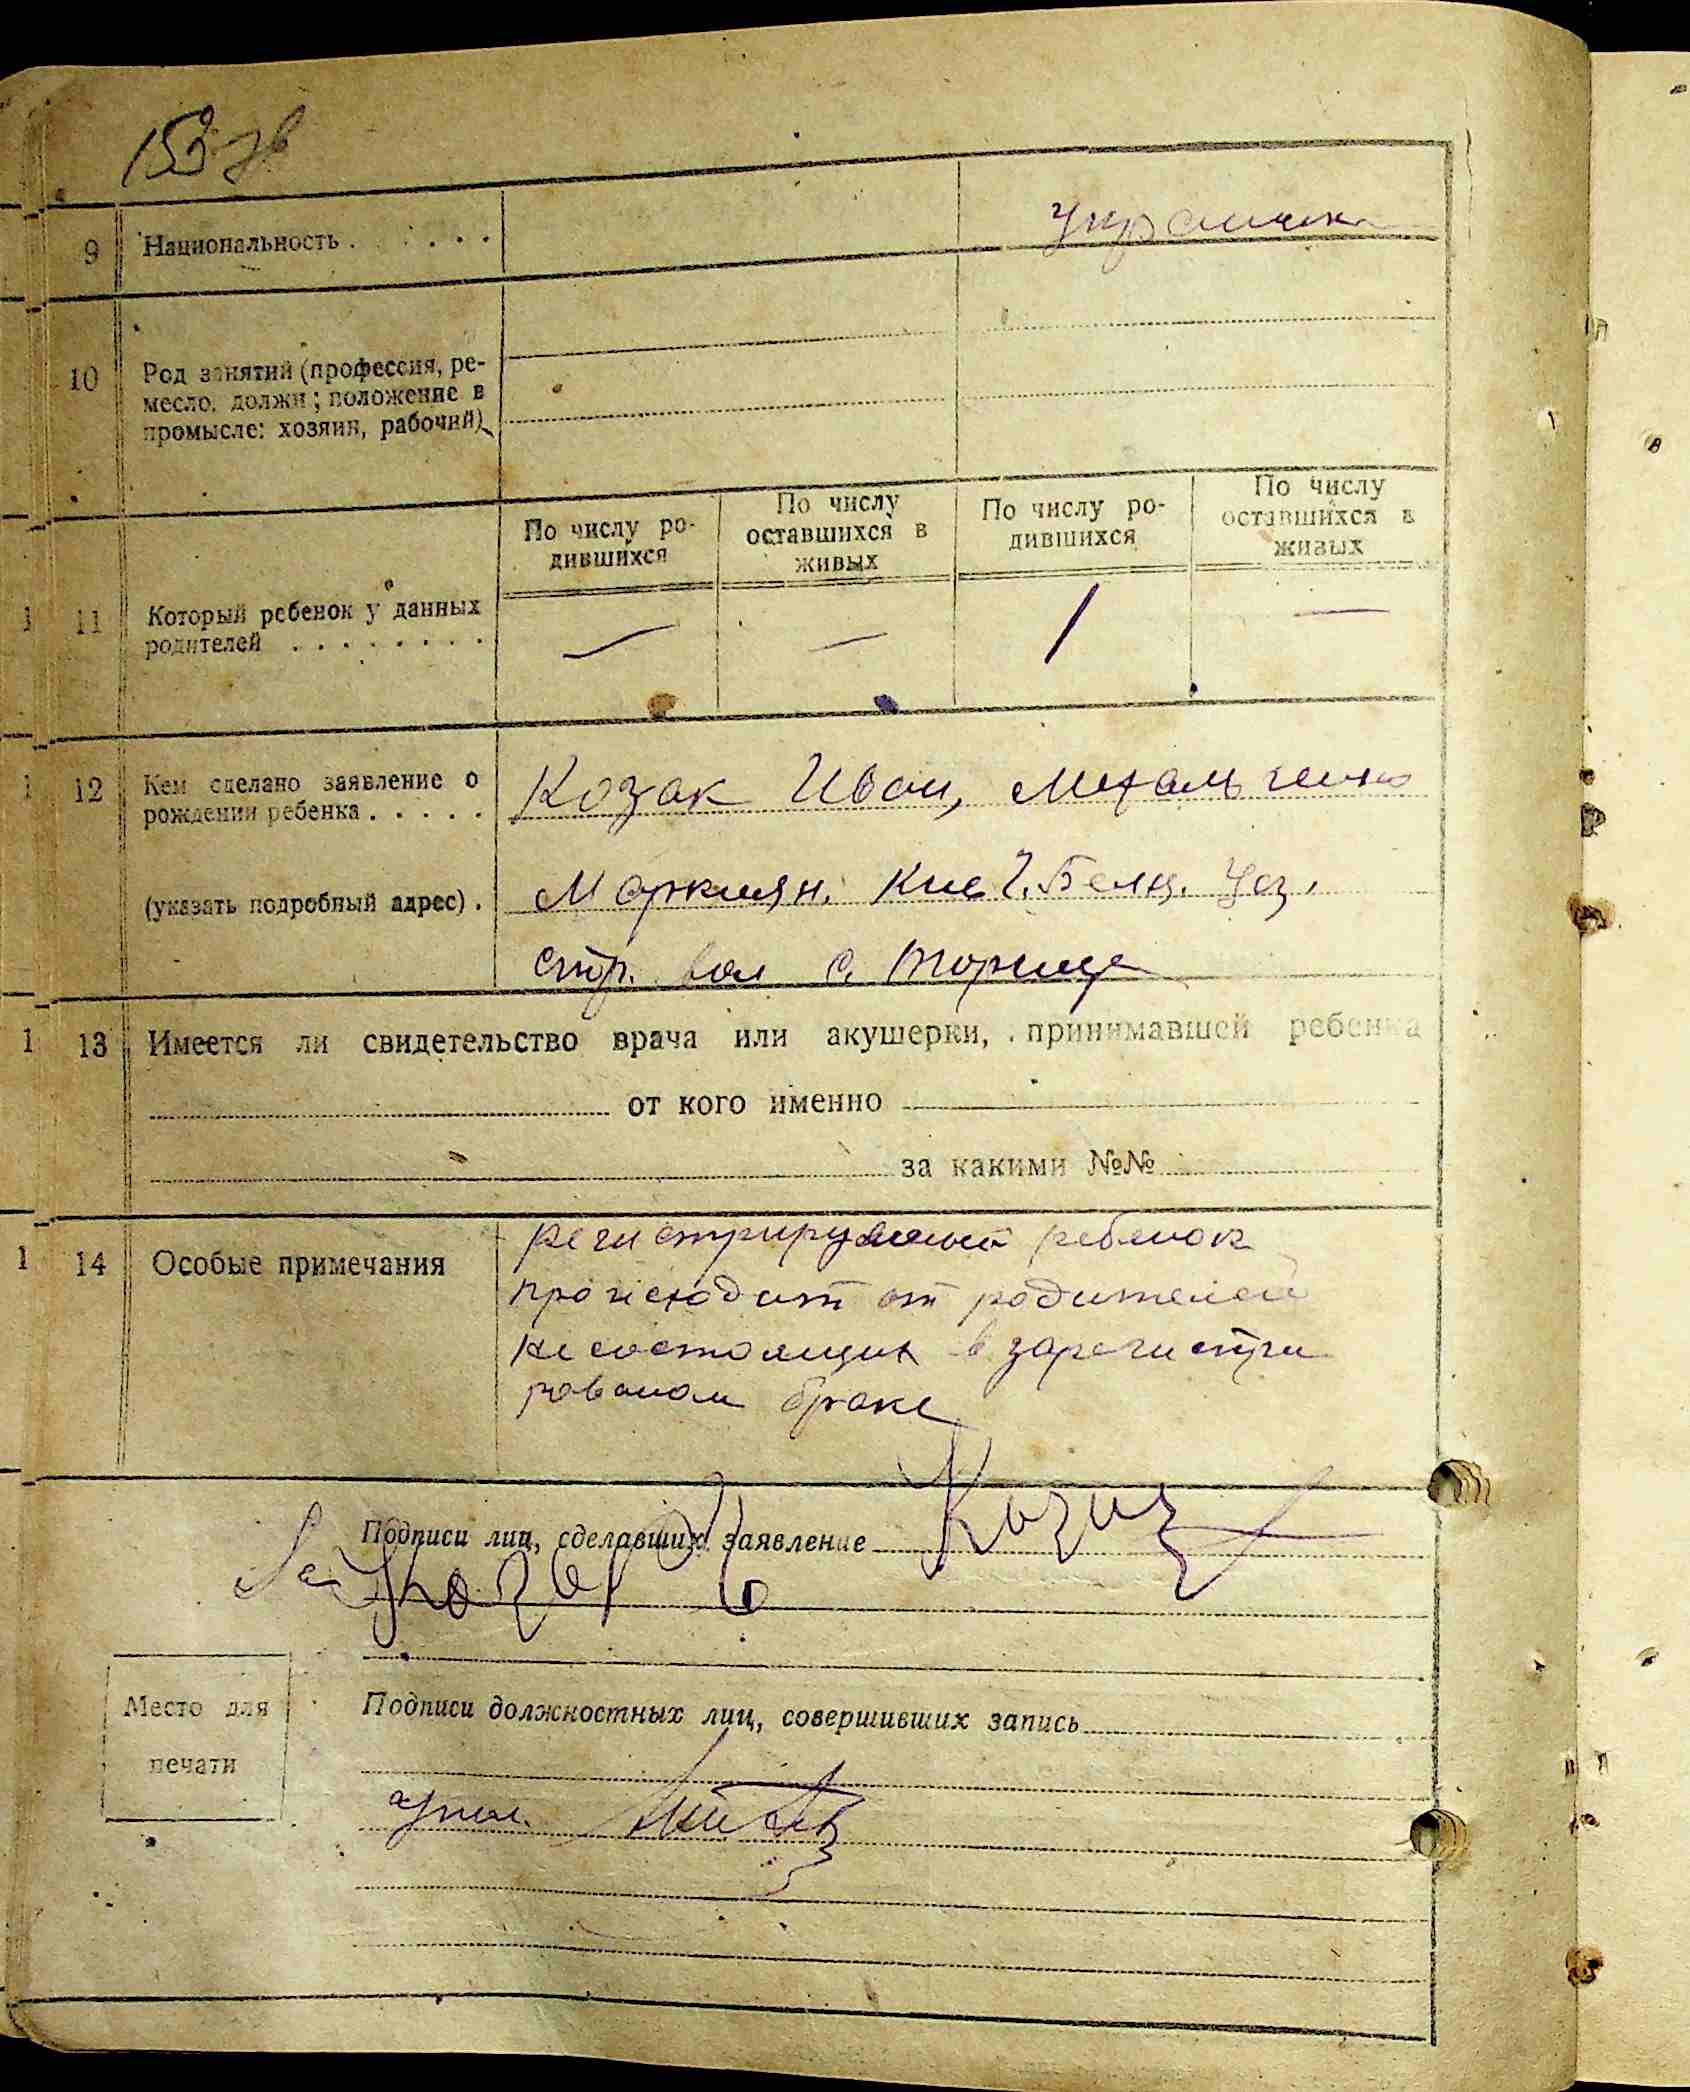 153 зв
9 Национальность . . . . . . украинка
10 Род занятий (профессия, ре-
месло, должн; положение в
промысле: хозяин, рабочий)
По числу ро-
дившихся
По числу
оставшихся в
живых
По числу ро-
дившихся
По числу
оставшихся в
живых
1 11 Который ребенок у данных
родителей . . . . . . . . — — 1 —
1 12 Кем сделано заявление о
рождении ребенка . . . . . Козак Иван,
(указать подробный адрес) . Беляц. Уез.
вол с. Торица
1 13 Имеется ли свидетельство врача или акушерки, принимавшей ребенка
от кого именно
за какими №№
1 14 Особые примечания
регистрируемый ребенок
происходит от родителей
несостоящих в зарегистри
рованом браке
Подписи лиц, сделавших заявление
Место для
печати
Подписи должностных лиц, совершивших запись
упол.